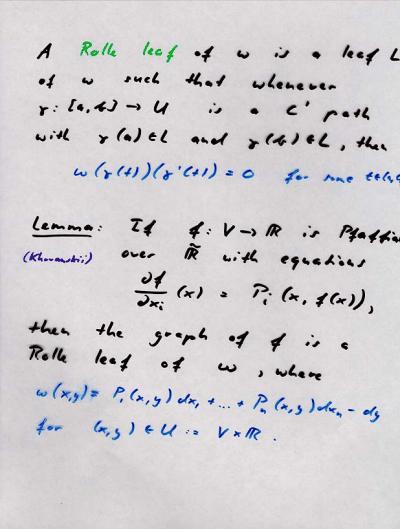 A Rolle leaf of ω is a leaf L
of ω such that whenever
γ: [a,b] → U is a C¹ path
with γ(a) ∈ L and γ(b) ∈ L, then
ω(γ(t))(γ'(t)) = 0 for some t∈[a,
Lemma: If f: V → ℝ is Pfaffian
(Khovanskii) over ℝ̃ with equations
∂f/∂xᵢ (x) = Pᵢ(x, f(x)),
then the graph of f is a
Rolle leaf of ω, where
ω(x,y) = P₁(x,y)dx₁ + ... + Pₙ(x,y)dxₙ - dy
for (x,y) ∈ U := V × ℝ.